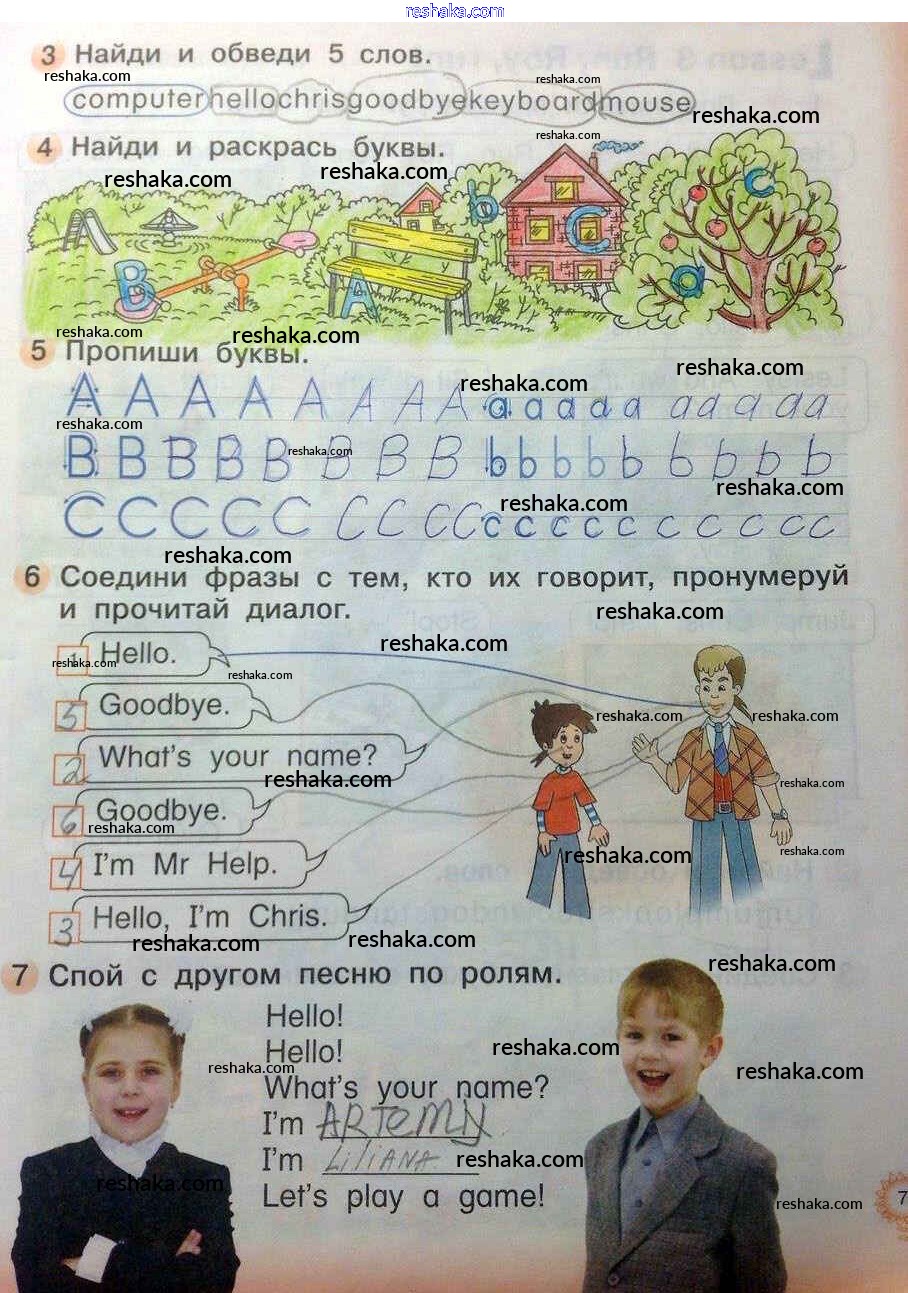 reshaka.com
3 Найди и обведи 5 слов.
reshaka.com
reshaka.com
computerhellochrisgoodbyekeyboardmouse
reshaka.com
reshaka.com
4 Найди и раскрась буквы.
reshaka.com
reshaka.com
b C c
B A a
reshaka.com
reshaka.com
5 Пропиши буквы.
reshaka.com
reshaka.com
A A A A A A A A a a a a a a a a a a
reshaka.com
reshaka.com
B B B B B B B B b b b b b b b b b
reshaka.com
reshaka.com
C C C C C C C C C c c c c c c c c c c
reshaka.com
6 Соедини фразы с тем, кто их говорит, пронумеруй
и прочитай диалог.
reshaka.com
reshaka.com
1 Hello.
reshaka.com
reshaka.com
5 Goodbye.
reshaka.com
reshaka.com
2 What's your name?
reshaka.com
reshaka.com
6 Goodbye.
reshaka.com
reshaka.com
reshaka.com
4 I'm Mr Help.
3 Hello, I'm Chris.
reshaka.com
reshaka.com
7 Спой с другом песню по ролям.
reshaka.com
Hello!
Hello!
reshaka.com
reshaka.com
reshaka.com
What's your name?
I'm ARTEMIY
I'm LILIANA
reshaka.com
reshaka.com
Let's play a game!
reshaka.com
7